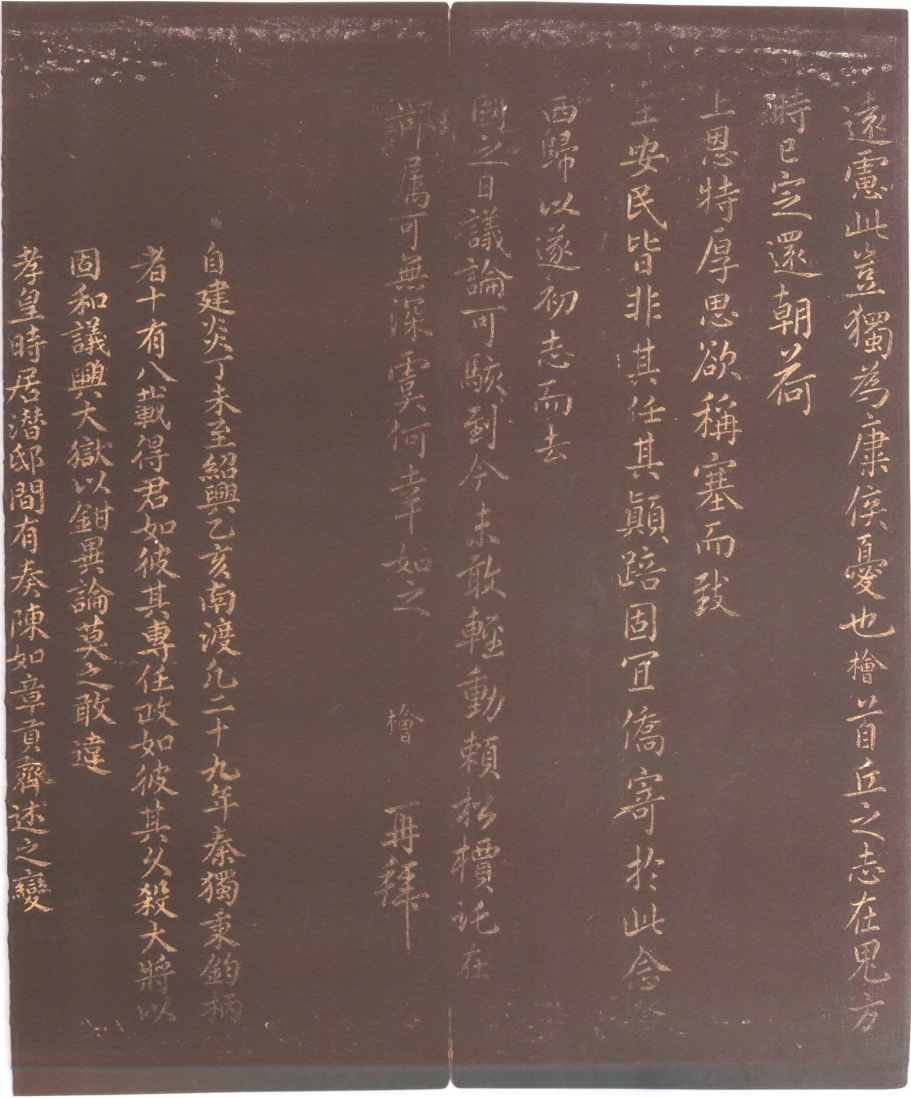 遠慮此豈獨為康侯憂也檜首丘之志在鬼方
時已定還朝荷
上恩特厚思欲稱塞而致
主安民皆非其任其顛踣固宜僑寄於此念念
西歸以遂初志而去
國之日議論可駭到今未敢輕動賴松檟託在
鄰属可無深虞何幸如之　檜　再拜
自建炎丁未至紹興乙亥南渡凢二十九年秦獨秉鈞柄
者十有八載得君如彼其專任政如彼其久殺大將以
固和議興大獄以鉗異論莫之敢違
孝皇時居潛邸間有奏陳如章貢齊述之變